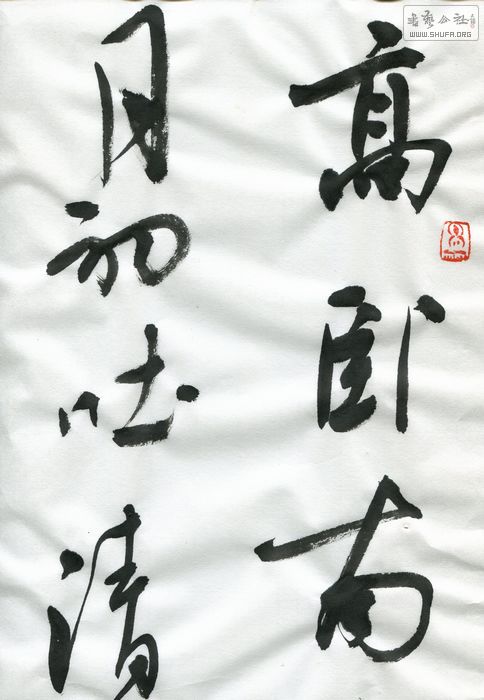 髙卧南
月初吐清
書藝公社
WWW.SHUFA.ORG